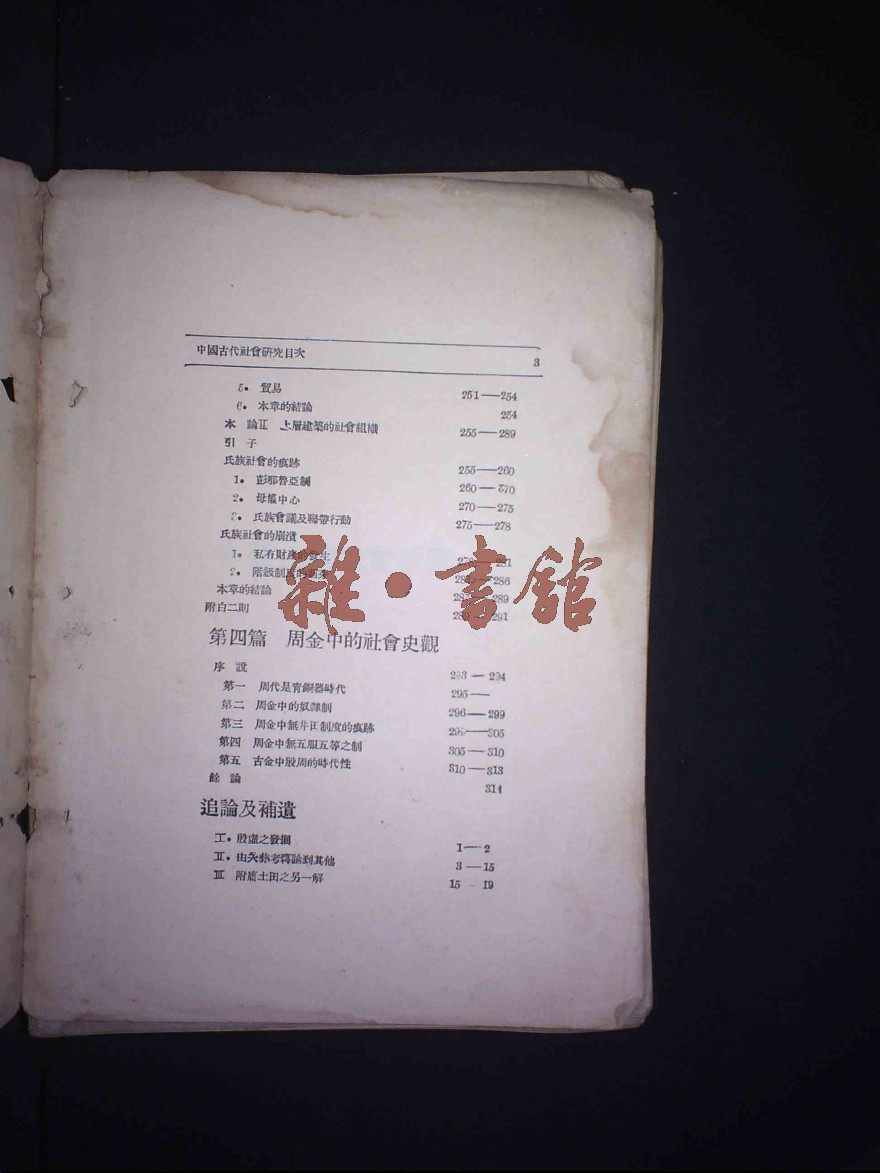 中國古代社會硏究目次 3
5. 貿易 251——254
6. 本章的結論 254
本 論II 上層建築的社會組織 255——289
引 子
氏族社會的痕跡 255——260
1. 彭那魯亞制 260——270
2. 母權中心 270——275
3. 氏族會議及聯帶行動 275——278
氏族社會的崩潰
1. 私有財產的發生
2. 階級制度的 286
本章的結論 289
附白二則 291
雜·書館
第四篇 周金中的社會史觀
序 說 293——294
第一 周代是靑銅器時代 295——
第二 周金中的奴隸制 296——299
第三 周金中無井田制度的痕跡 299——305
第四 周金中無五服五等之制 305——310
第五 古金中殷周的時代性 310——313
餘 論 314
追論及補遺
I. 殷虛之發掘 1——2
II. 由矢彝考釋論到其他 3——15
III 附庸土田之另一解 15－19